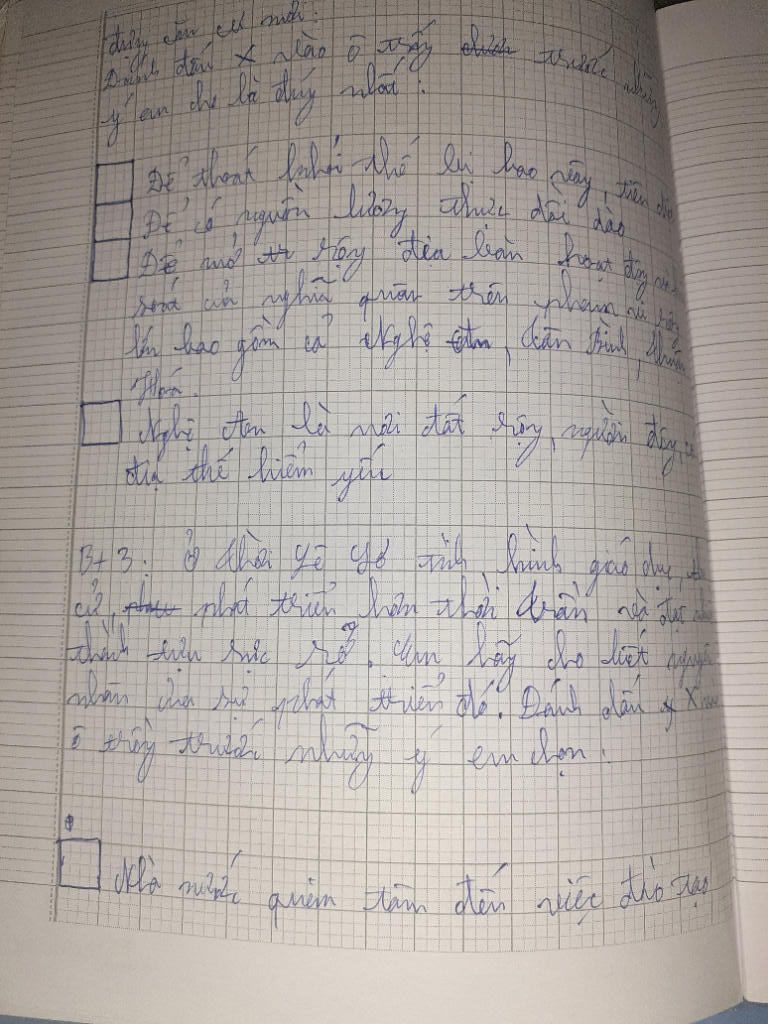 đựng căn cứ mới.
Đánh dấu X vào ô trống trước những
ý em cho là đúng nhất:
Để thoát khỏi thế bị bao vây, tiêu diệt
Để có nguồn lương thực dồi dào
Để mở rộng địa bàn hoạt động
soát của nghĩa quân trên phạm vi rộng
lớn bao gồm cả Nghệ An, Tân Bình, Thuận
Hoá.
Nghệ An là nơi đất rộng, người đông, có
địa thế hiểm yếu
BT 3: Ở thời Lê Sơ tình hình giáo dục, thi
cử, phát triển hơn thời trần và đạt
thành tựu rực rỡ. Em hãy cho biết nguyên
nhân của sự phát triển đó. Đánh dấu X vào
ô trống trước những ý em chọn:
Nhà nước quan tâm đến việc đào tạo